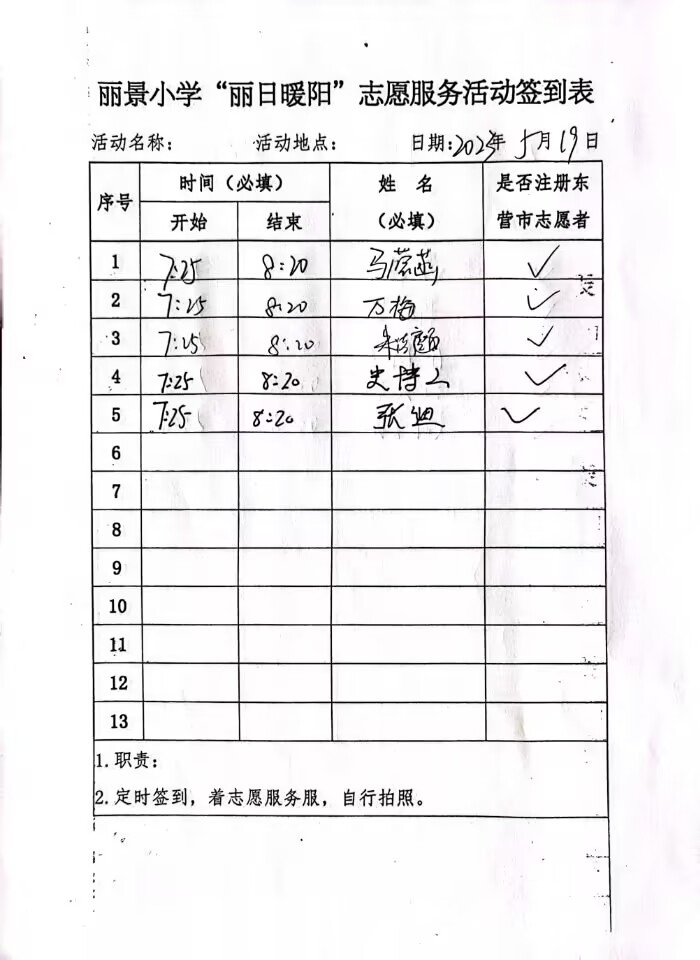 丽景小学“丽日暖阳”志愿服务活动签到表
活动名称: 活动地点: 日期:2025年 5月19日
序号 时间（必填） 姓 名（必填） 是否注册东营市志愿者
开始 结束
1 7:25 8:20 马蓉菡 ✓
2 7:25 8:20 万梅 ✓
3 7:25 8:20 ✓
4 7:25 8:20 史博工 ✓
5 7:25 8:20 张迪 ✓
6
7
8
9
10
11
12
13
1.职责:
2.定时签到，着志愿服务服，自行拍照。